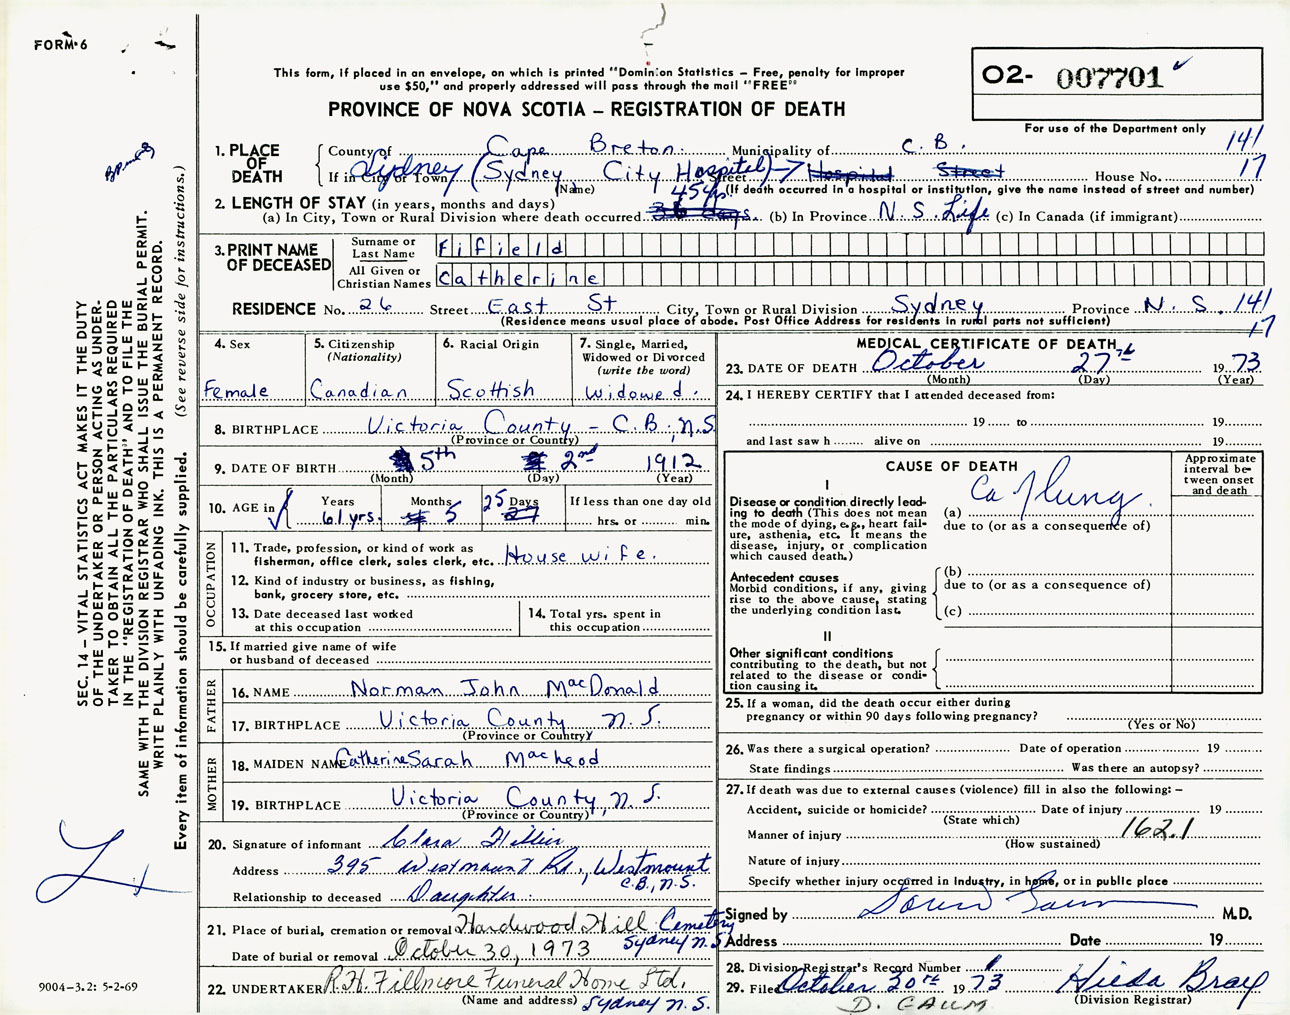 FORM 6
This form, if placed in an envelope, on which is printed "Dominion Statistics – Free, penalty for improper
use $50," and properly addressed will pass through the mail "FREE"
PROVINCE OF NOVA SCOTIA – REGISTRATION OF DEATH
O2- 007701
For use of the Department only
SEC. 14 – VITAL STATISTICS ACT MAKES IT THE DUTY
OF THE UNDERTAKER OR PERSON ACTING AS UNDER-
TAKER TO OBTAIN ALL THE PARTICULARS REQUIRED
IN THE "REGISTRATION OF DEATH" AND TO FILE THE
SAME WITH THE DIVISION REGISTRAR WHO SHALL ISSUE THE BURIAL PERMIT.
WRITE PLAINLY WITH UNFADING INK. THIS IS A PERMANENT RECORD.
Every item of information should be carefully supplied. (See reverse side for instructions.)
1. PLACE OF DEATH County of Cape Breton Municipality of C. B. 141
If in City or Town Sydney (Sydney City Hospital) → Hospital Street House No. 17
(Name) Street (If death occurred in a hospital or institution, give the name instead of street and number)
2. LENGTH OF STAY (in years, months and days)
(a) In City, Town or Rural Division where death occurred 45 yrs. 36 days. (b) In Province N. S. Life (c) In Canada (if immigrant)
3. PRINT NAME OF DECEASED Surname or Last Name Fifield
All Given or Christian Names Catherine
RESIDENCE No. 26 Street East St City, Town or Rural Division Sydney Province N. S. 141
(Residence means usual place of abode. Post Office Address for residents in rural parts not sufficient) 17
4. Sex 5. Citizenship (Nationality) 6. Racial Origin 7. Single, Married, Widowed or Divorced (write the word)
Female Canadian Scottish Widowed.
8. BIRTHPLACE Victoria County – C.B., N.S
(Province or Country)
9. DATE OF BIRTH 5th 2nd 1912
(Month) (Day) (Year)
10. AGE in Years Months Days If less than one day old
61 yrs. 5 25 27 hrs. or min.
OCCUPATION
11. Trade, profession, or kind of work as
fisherman, office clerk, sales clerk, etc. House wife.
12. Kind of industry or business, as fishing,
bank, grocery store, etc.
13. Date deceased last worked
at this occupation
14. Total yrs. spent in
this occupation
15. If married give name of wife
or husband of deceased
FATHER
16. NAME Norman John MacDonald
17. BIRTHPLACE Victoria County N. S.
(Province or Country)
MOTHER
18. MAIDEN NAME Catherine Sarah MacLeod
19. BIRTHPLACE Victoria County, N. S.
(Province or Country)
20. Signature of informant Clara
Address 395 Westmount Rd., Westmount
C.B., N.S.
Relationship to deceased Daughter
21. Place of burial, cremation or removal Hardwood Hill Cemetery
Date of burial or removal October 30, 1973 Sydney N.S.
22. UNDERTAKER R.H. Fillmore Funeral Home Ltd.
(Name and address) Sydney N. S.
MEDICAL CERTIFICATE OF DEATH
23. DATE OF DEATH October 27th 1973
(Month) (Day) (Year)
24. I HEREBY CERTIFY that I attended deceased from:
19 to 19
and last saw h alive on 19
CAUSE OF DEATH
Approximate interval be-tween onset and death
I
Disease or condition directly lead-
ing to death (This does not mean
the mode of dying, e.g., heart fail-
ure, asthenia, etc. It means the
disease, injury, or complication
which caused death.)
(a) Ca of lung.
due to (or as a consequence of)
Antecedent causes
Morbid conditions, if any, giving
rise to the above cause, stating
the underlying condition last.
(b)
due to (or as a consequence of)
(c)
II
Other significant conditions
contributing to the death, but not
related to the disease or condi-
tion causing it.
25. If a woman, did the death occur either during
pregnancy or within 90 days following pregnancy?
(Yes or No)
26. Was there a surgical operation? Date of operation 19
State findings Was there an autopsy?
27. If death was due to external causes (violence) fill in also the following: –
Accident, suicide or homicide? Date of injury 19
(State which)
Manner of injury 162.1
(How sustained)
Nature of injury
Specify whether injury occurred in industry, in home, or in public place
Signed by M.D.
Address Date 19
28. Division Registrar's Record Number
29. Filed October 30th 1973 Hilda Bray
(Division Registrar)
D. GAUM
9004-3.2: 5-2-69